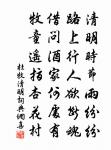 清明時節雨紛紛
路上行人欲斷魂
借問酒家何處有
牧童遙指杏花村
杜牧清明詞典網書